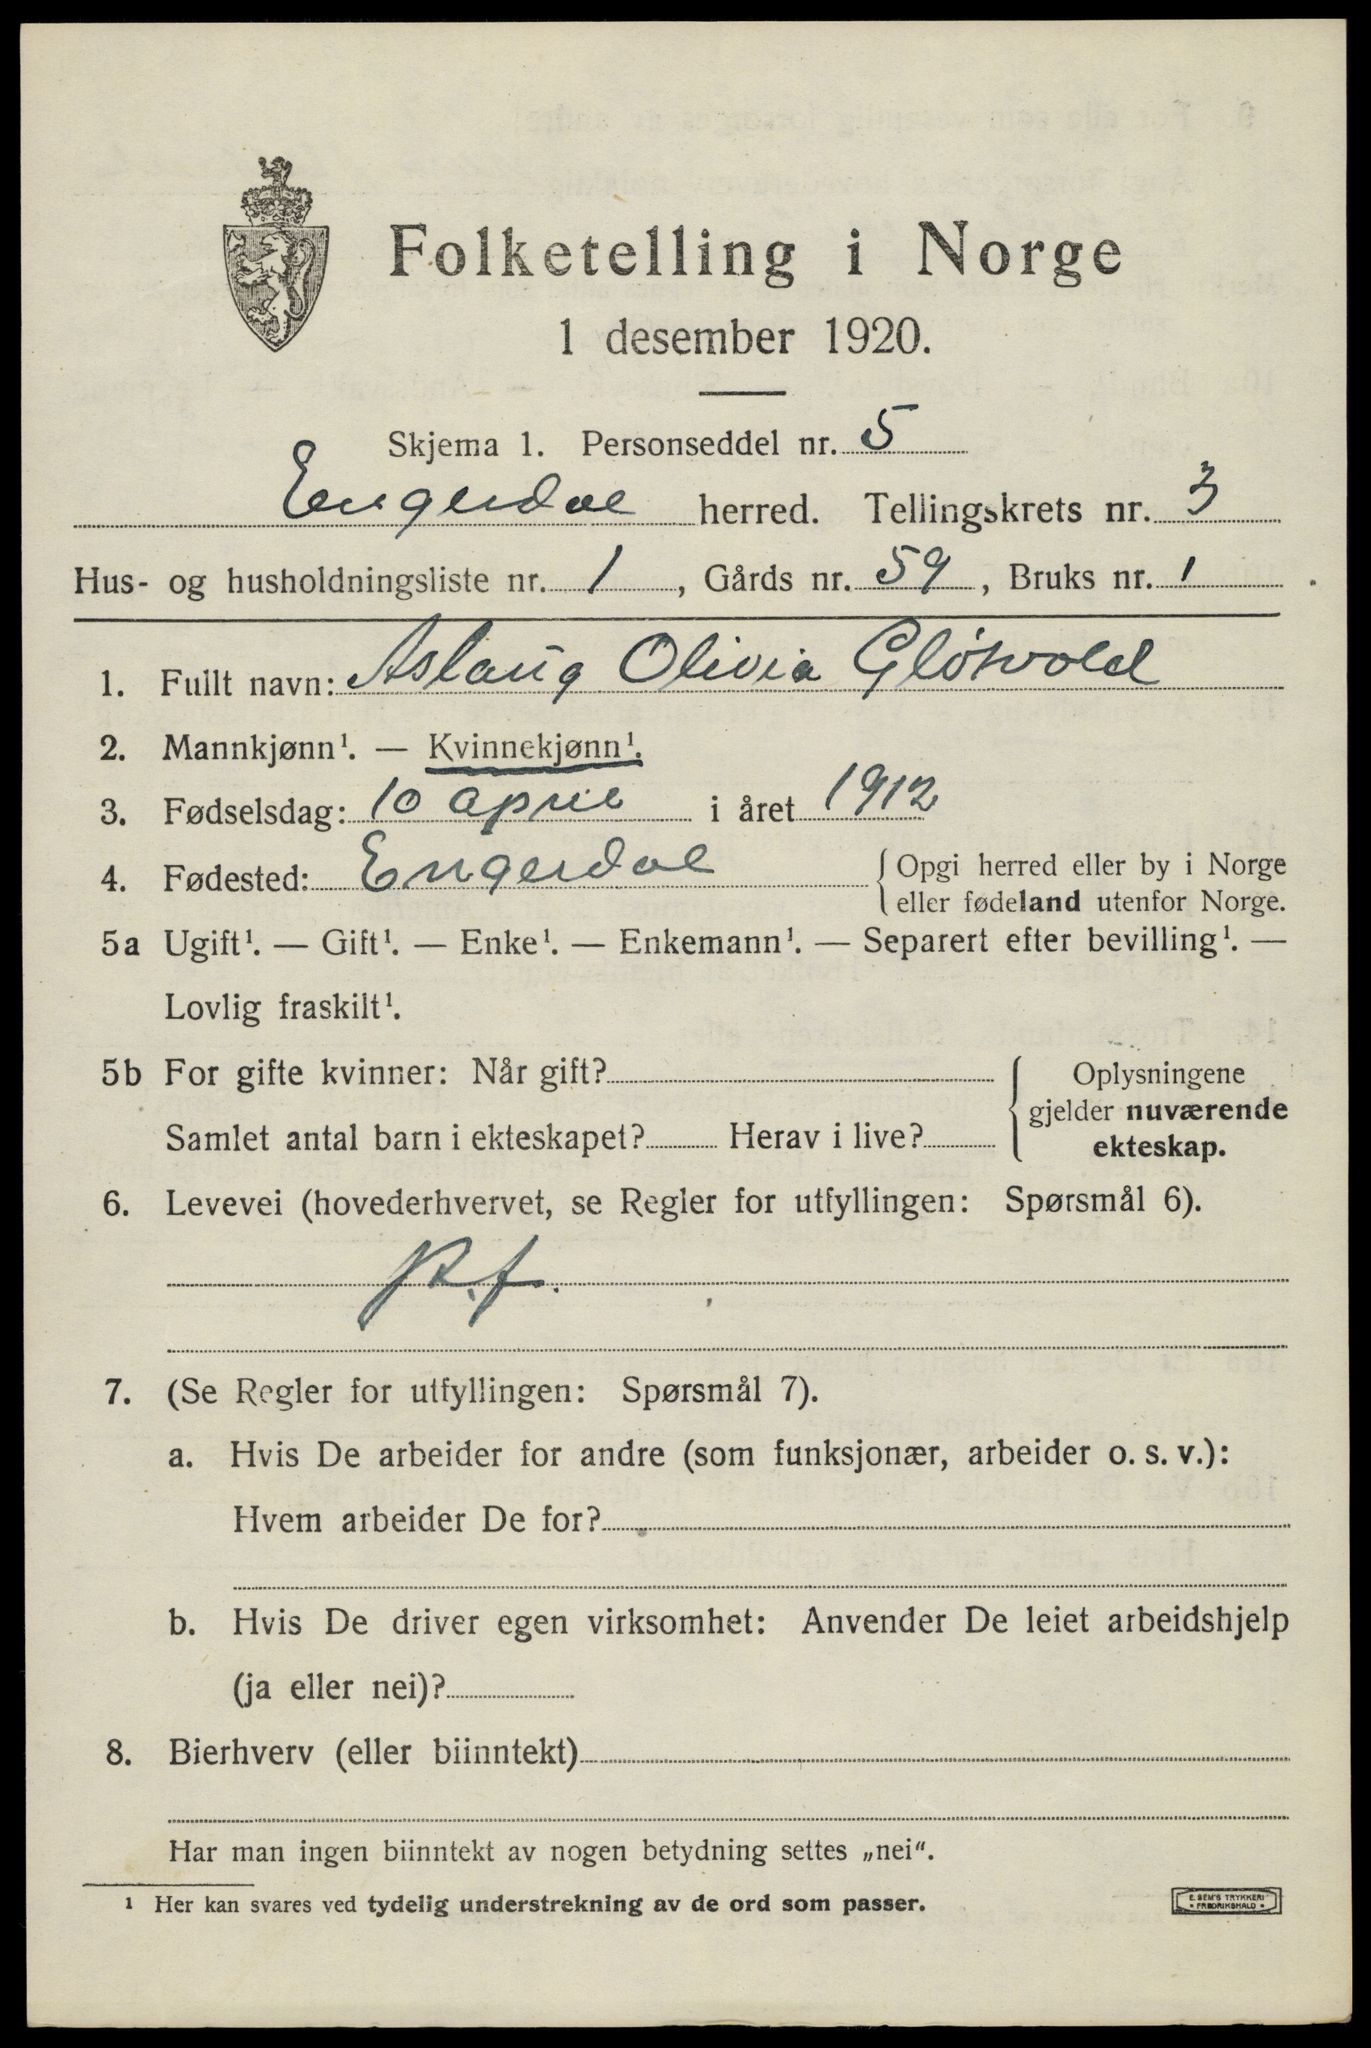 Folketelling i Norge
1 desember 1920.
Skjema 1. Personseddel nr. 5
Engerdal herred. Tellingskrets nr. 3
Hus- og husholdningsliste nr. 1, Gårds nr. 59, Bruks nr. 1.
1. Fullt navn: Aslaug Olivia Gløtvold
2. Mannkjønn¹. — Kvinnekjønn¹.
3. Fødselsdag: 10 april i året 1912
4. Fødested: Engerdal {Opgi herred eller by i Norge
eller fødeland utenfor Norge.
5a Ugift¹. — Gift¹. — Enke¹. — Enkemann¹. — Separert efter bevilling¹. —
Lovlig fraskilt¹.
5b For gifte kvinner: Når gift? { Oplysningene
gjelder nuværende
Samlet antal barn i ekteskapet? Herav i live?
ekteskap.
6. Levevei (hovederhvervet, se Regler for utfyllingen: Spørsmål 6).
7. (Se Regler for utfyllingen: Spørsmål 7).
a. Hvis De arbeider for andre (som funksjonær, arbeider o. s. v.):
Hvem arbeider De for?
b. Hvis De driver egen virksomhet: Anvender De leiet arbeidshjelp
(ja eller nei)?
8. Bierhverv (eller biinntekt)
Har man ingen biinntekt av nogen betydning settes „nei“.
¹ Her kan svares ved tydelig understrekning av de ord som passer.
E. SEM'S TRYKKERI
• FREDRIKSHALD •